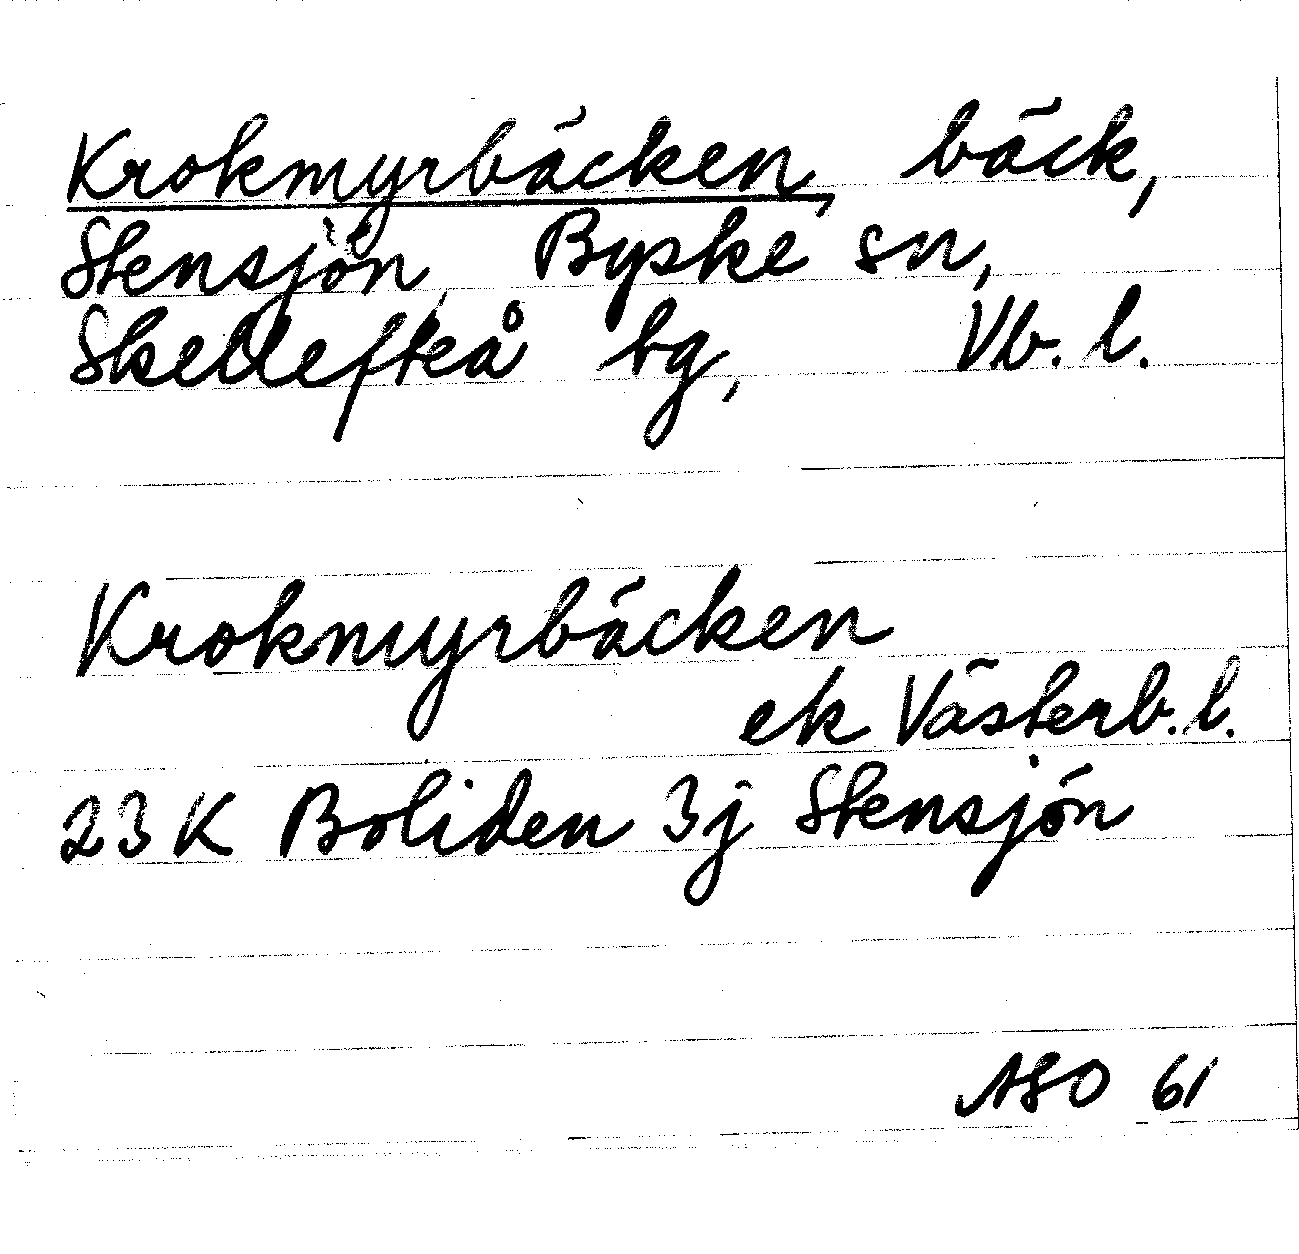 Krokmyrbäcken, bäck,
Stensjön, Byske sn,
Skellefteå bg, Vb. l.
Krokmyrbäcken
ek Västerb. l.
23 K Boliden 3j Stensjön
ASO 61